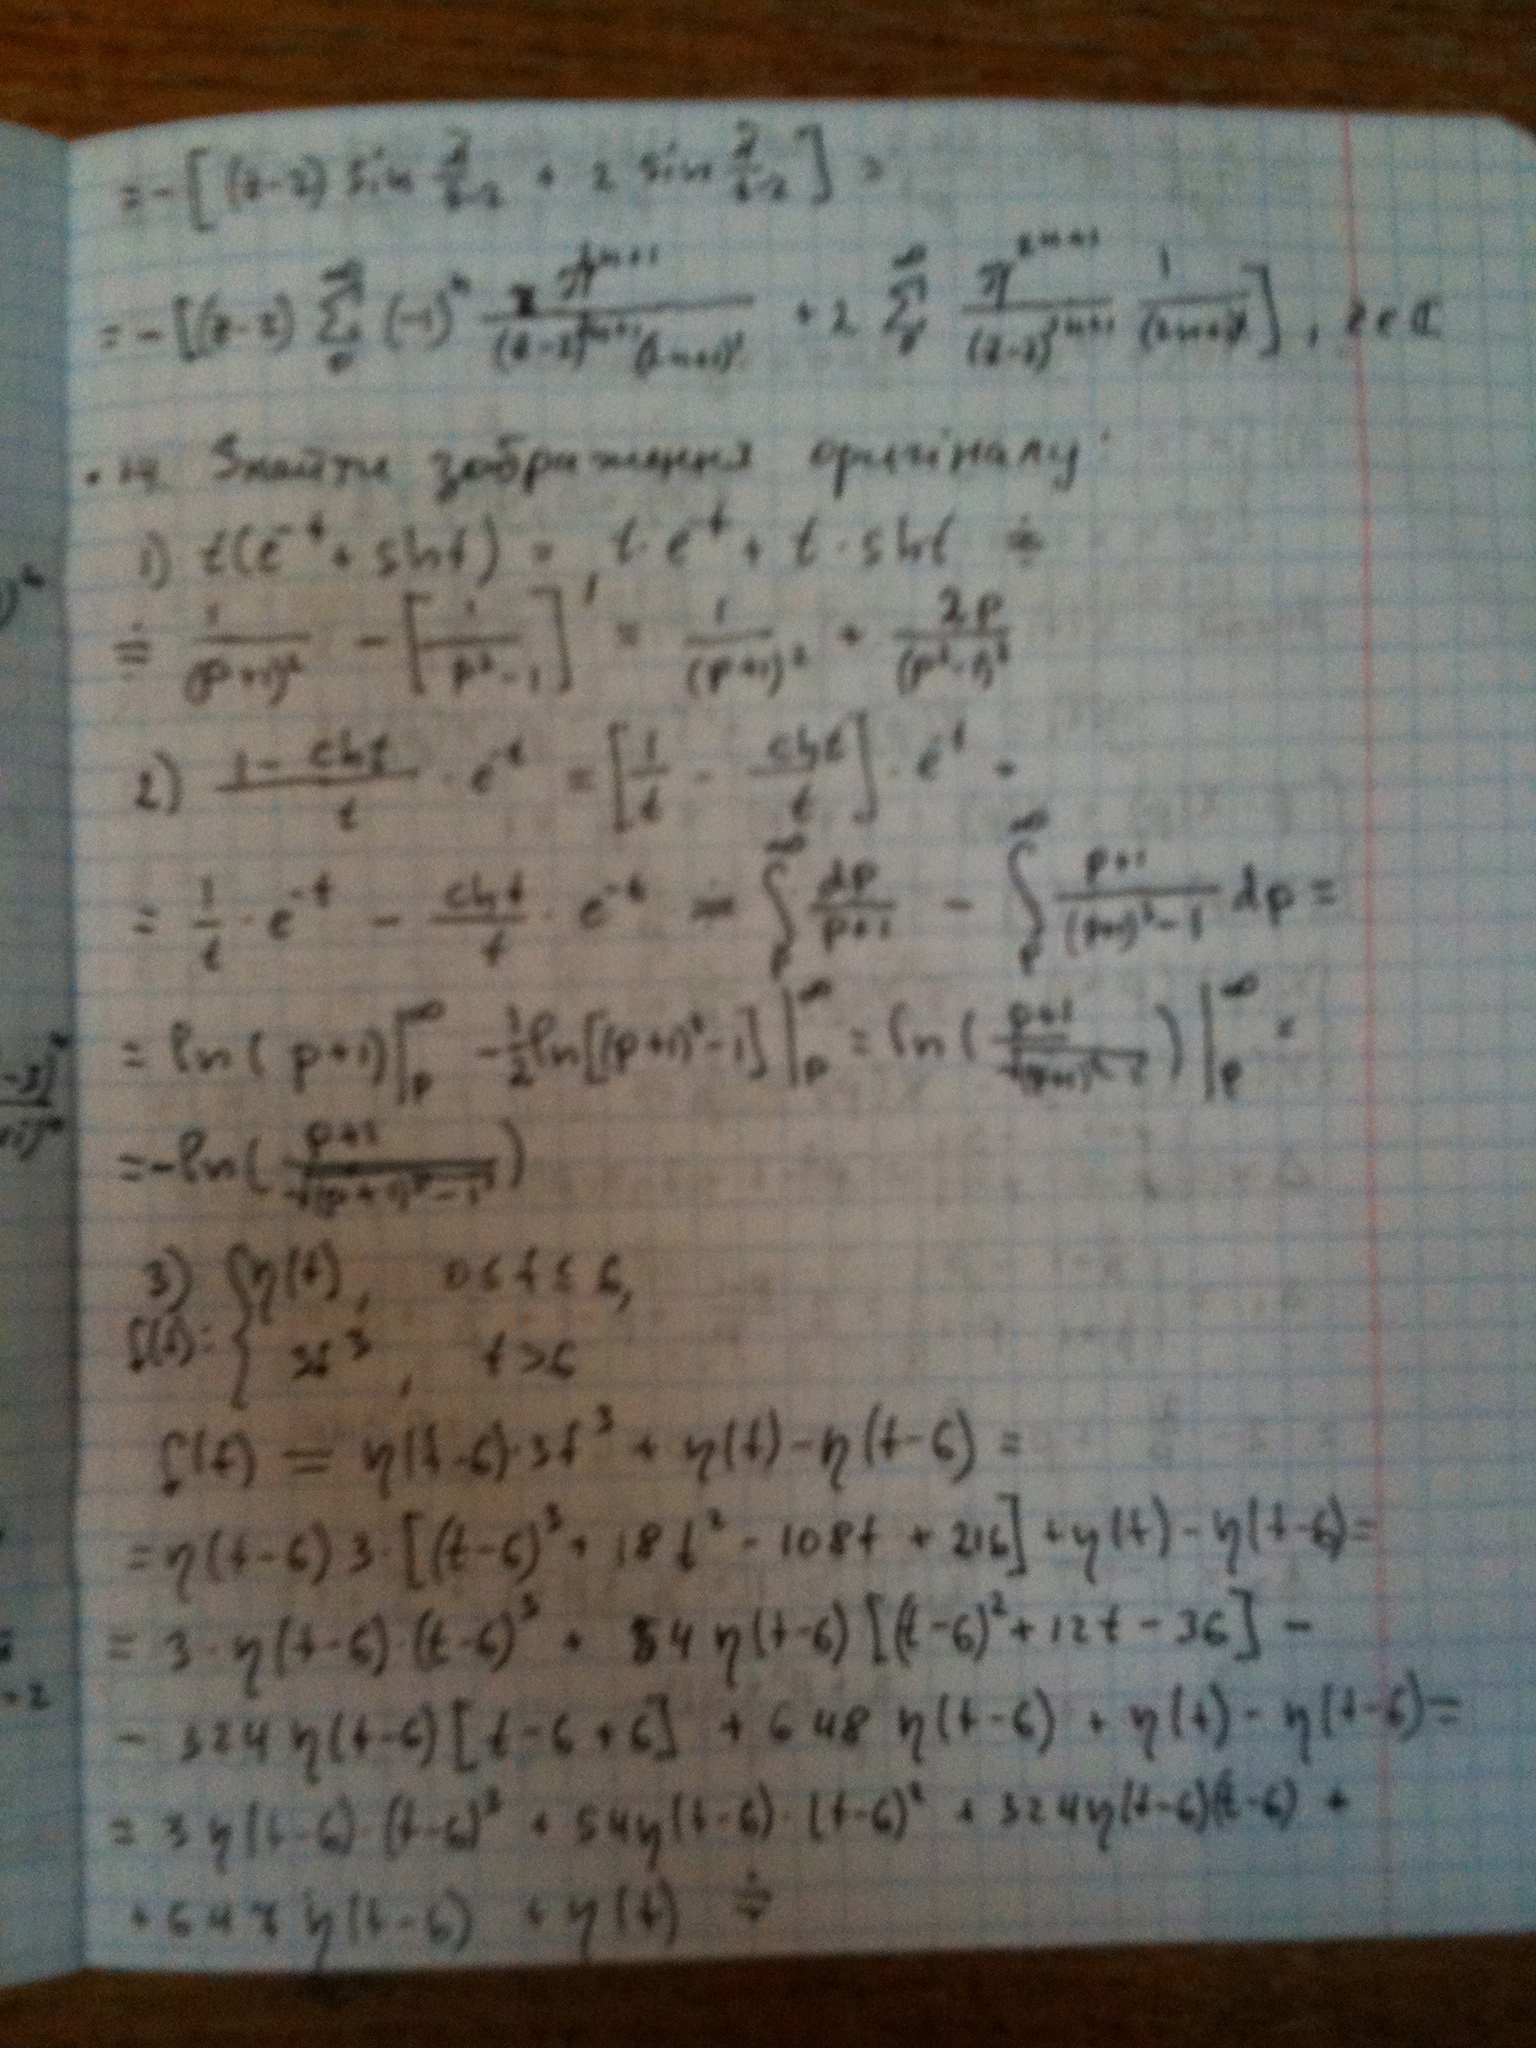 = - [ (z-2) sin π/(z-2) + 2 sin π/(z-2) ] =
= - [ (z-2) Σ₀^∞ (-1)ⁿ π²ⁿ⁺¹/((z-2)²ⁿ⁺¹(2n+1)!) + 2 Σ₀^∞ π²ⁿ⁺¹/(z-2)²ⁿ⁺¹ 1/(2n+1)! ], z ∈ ℂ
Знайти зображення оригіналу:
1) t(e⁻ᵗ + sht) = t·e⁻ᵗ + t·sht ≑
≑ 1/(p+1)² - [1/(p²-1)]' = 1/(p+1)² + 2p/(p²-1)²
2) (1-cht)/t · e⁻ᵗ = [1/t - cht/t] · e⁻ᵗ =
= 1/t · e⁻ᵗ - cht/t · e⁻ᵗ ≑ ∫ₚ^∞ dp/(p+1) - ∫ₚ^∞ (p+1)/((p+1)²-1) dp =
= ln(p+1)|ₚ^∞ - 1/2 ln[(p+1)²-1]|ₚ^∞ = ln((p+1)/√((p+1)²-1))|ₚ^∞ =
= -ln((p+1)/√((p+1)²-1))
3) { η(t), 0≤t≤6,
f(t)= { 3t³, t>6
f(t) = η(t-6)·3t³ + η(t) - η(t-6) =
= η(t-6) 3·[(t-6)³ + 18t² - 108t + 216] + η(t) - η(t-6) =
= 3·η(t-6)·(t-6)³ + 54η(t-6)[(t-6)² + 12t - 36] -
- 324η(t-6)[t-6+6] + 648 η(t-6) + η(t) - η(t-6) =
= 3η(t-6)·(t-6)³ + 54η(t-6)·(t-6)² + 324η(t-6)(t-6) +
+ 647 η(t-6) + η(t) ≑